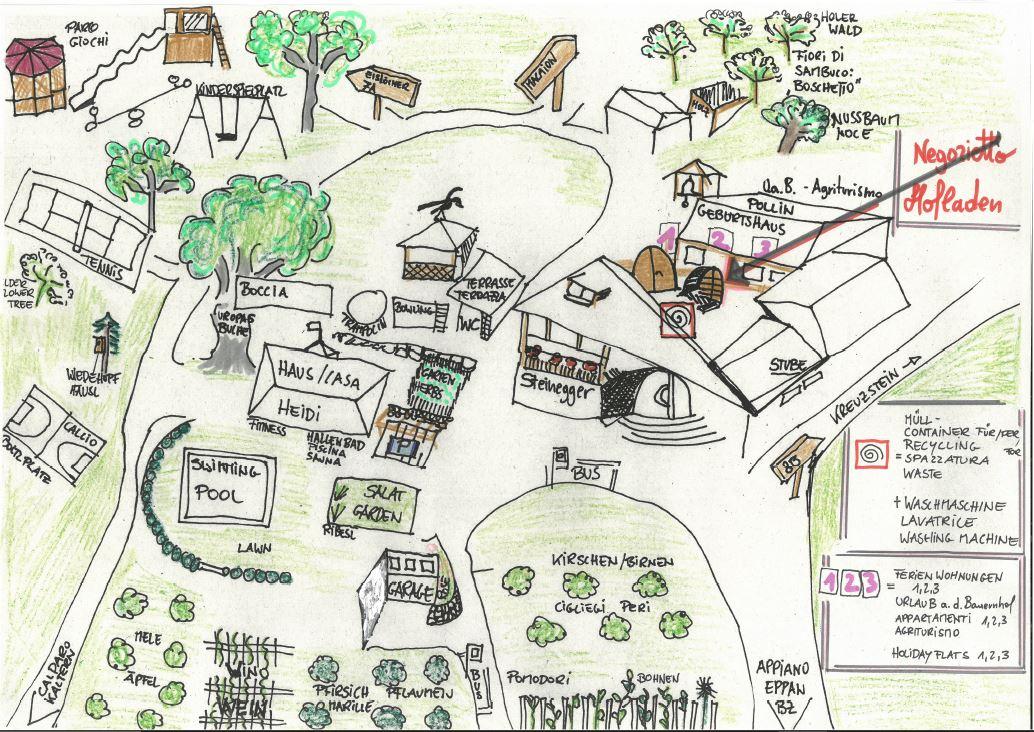 PARCO
GIOCHI
KINDERSPIELPLATZ
EISLÖCHER
MACAION
HOLER
WALD
FIORI DI
SAMBUCO:
BOSCHETTO"
HOLZ
NUSSBAUM
NOCE
Negozietto
Hofladen
Ua.B. - Agriturismo
POLLIN
GEBURTSHAUS
1 2 3
TENNIS
LDER
LOWER
TREE
BOCCIA
UROPAS
BUCHE
TRAMPOLIN
BOWLING
TERRASSE
TERRAZZA
WC
WIEDEHOPF
HÄUSL
HAUS//CASA
HEIDI
FITNESS
HALLENBAD
PISCINA
SAUNA
GARTEN
HERBS
Steinegger
STUBE
KREUZSTEIN →
CALCIO
BOLZPLATZ
SWIMMING
POOL
LAWN
SALAT
GARDEN
RIBESL
GARAGE
BUS
85
MÜLL-
CONTAINER FÜR/PER
RECYCLING
= SPAZZATURA
WASTE
+ WASCHMASCHINE
LAVATRICE
WASHING MACHINE
1 2 3 = FERIENWOHNUNGEN
1,2,3
URLAUB a.d. Bauernhof
APPARTAMENTI 1,2,3
AGRITURISMO
HOLIDAY FLATS 1,2,3
KIRSCHEN/BIRNEN
CIGLIEGI PERI
MELE
ÄPFEL
VINO
WEIN
PFIRSICH
MARILLE
PFLAUMEN
BUS
POMODORI
BOHNEN
CALDARO
KALTERN
APPIANO
EPPAN
BZ